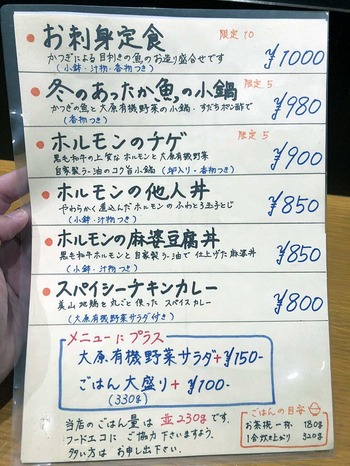 お刺身定食 限定10 ¥1000
かつぎによる目利きの魚のお造り盛合せです
(小鉢・汁物・香物つき)
冬のあったか魚の小鍋 限定5 ¥980
かつぎの魚と大原有機野菜の小鍋・すだちポン酢で
(香物つき)
ホルモンのチゲ 限定5 ¥900
黒毛和牛の上質なホルモンと大原有機野菜
自家製ラー油のコク旨小鍋 (卵入り・香物つき)
ホルモンの他人丼 ¥850
やわらかく煮込んだホルモンのふわとろ玉子とじ
(小鉢・汁物つき)
ホルモンの麻婆豆腐丼 ¥850
黒毛和牛ホルモンと自家製ラー油で仕上げた麻婆丼
(小鉢・汁物つき)
スパイシーチキンカレー ¥800
美山地鶏を丸ごと使ったスパイスカレー
(大原有機野菜サラダ付き)
メニューにプラス
大原有機野菜サラダ+¥150-
ごはん大盛り+¥100-
(330g)
当店のごはん量は並230gです。
フードエコにご協力下さいますよう。
多い方はお申し出下さい。
ごはんの目安
お茶碗一杯 180g
1合炊き上がり 320g